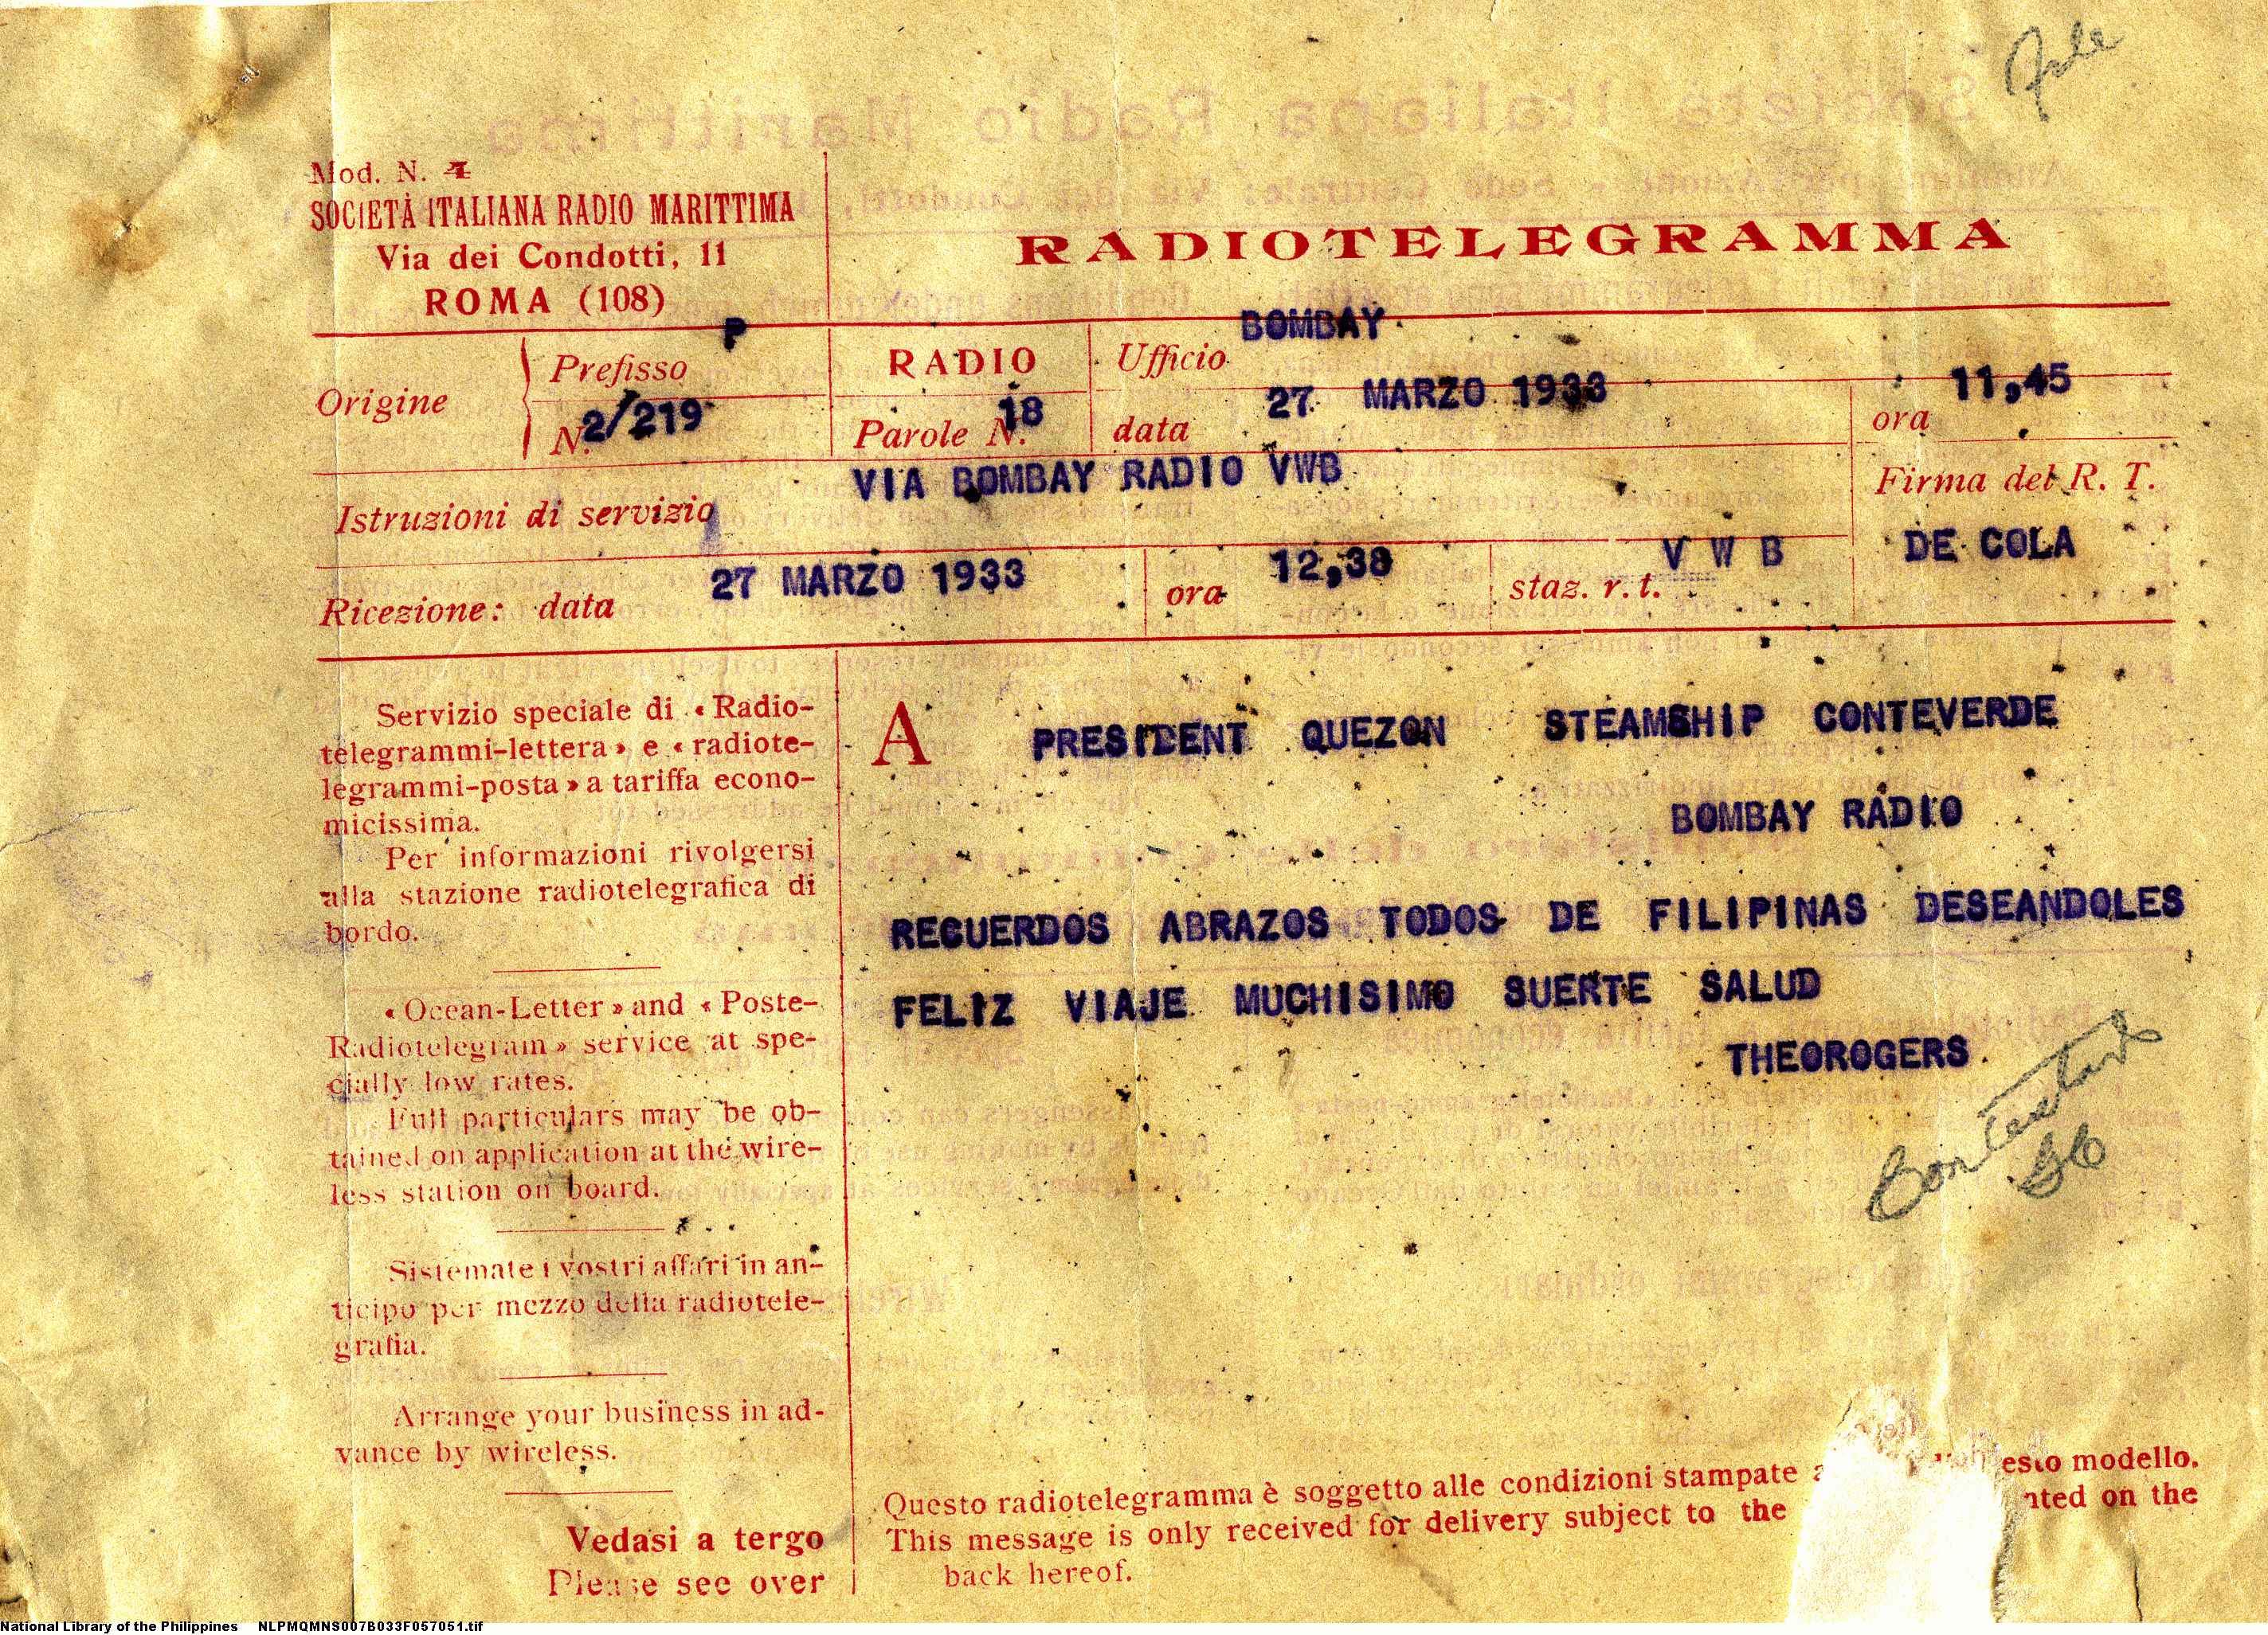 Mod. N. 4
SOCIETÀ ITALIANA RADIO MARITTIMA
Via dei Condotti, 11
ROMA (108)
RADIOTELEGRAMMA
Origine
Prefisso P
N. 2/219
RADIO
Parole N. 18
Ufficio BOMBAY
data 27 MARZO 1933
ora 11,45
Istruzioni di servizio VIA BOMBAY RADIO VWB
Firma del R. T.
DE COLA
Ricezione: data 27 MARZO 1933
ora 12,38
staz. r. t. V W B
Servizio speciale di « Radio-
telegrammi-lettera » e « radiote-
legrammi-posta » a tariffa econo-
micissima.
Per informazioni rivolgersi
alla stazione radiotelegrafica di
bordo.
« Ocean-Letter » and « Poste-
Radiotelegram » service at spe-
cially low rates.
Full particulars may be ob-
tained on application at the wire-
less station on board.
Sistemate i vostri affari in an-
ticipo per mezzo della radiotele-
grafia.
Arrange your business in ad-
vance by wireless.
Vedasi a tergo
Please see over
A PRESIDENT QUEZON STEAMSHIP CONTEVERDE
BOMBAY RADIO
RECUERDOS ABRAZOS TODOS DE FILIPINAS DESEANDOLES
FELIZ VIAJE MUCHISIMO SUERTE SALUD
THEOROGERS
Contestado
Questo radiotelegramma è soggetto alle condizioni stampate esto modello.
This message is only received for delivery subject to the nted on the
back hereof.
National Library of the Philippines NLPMQMNS007B033F057051.tif